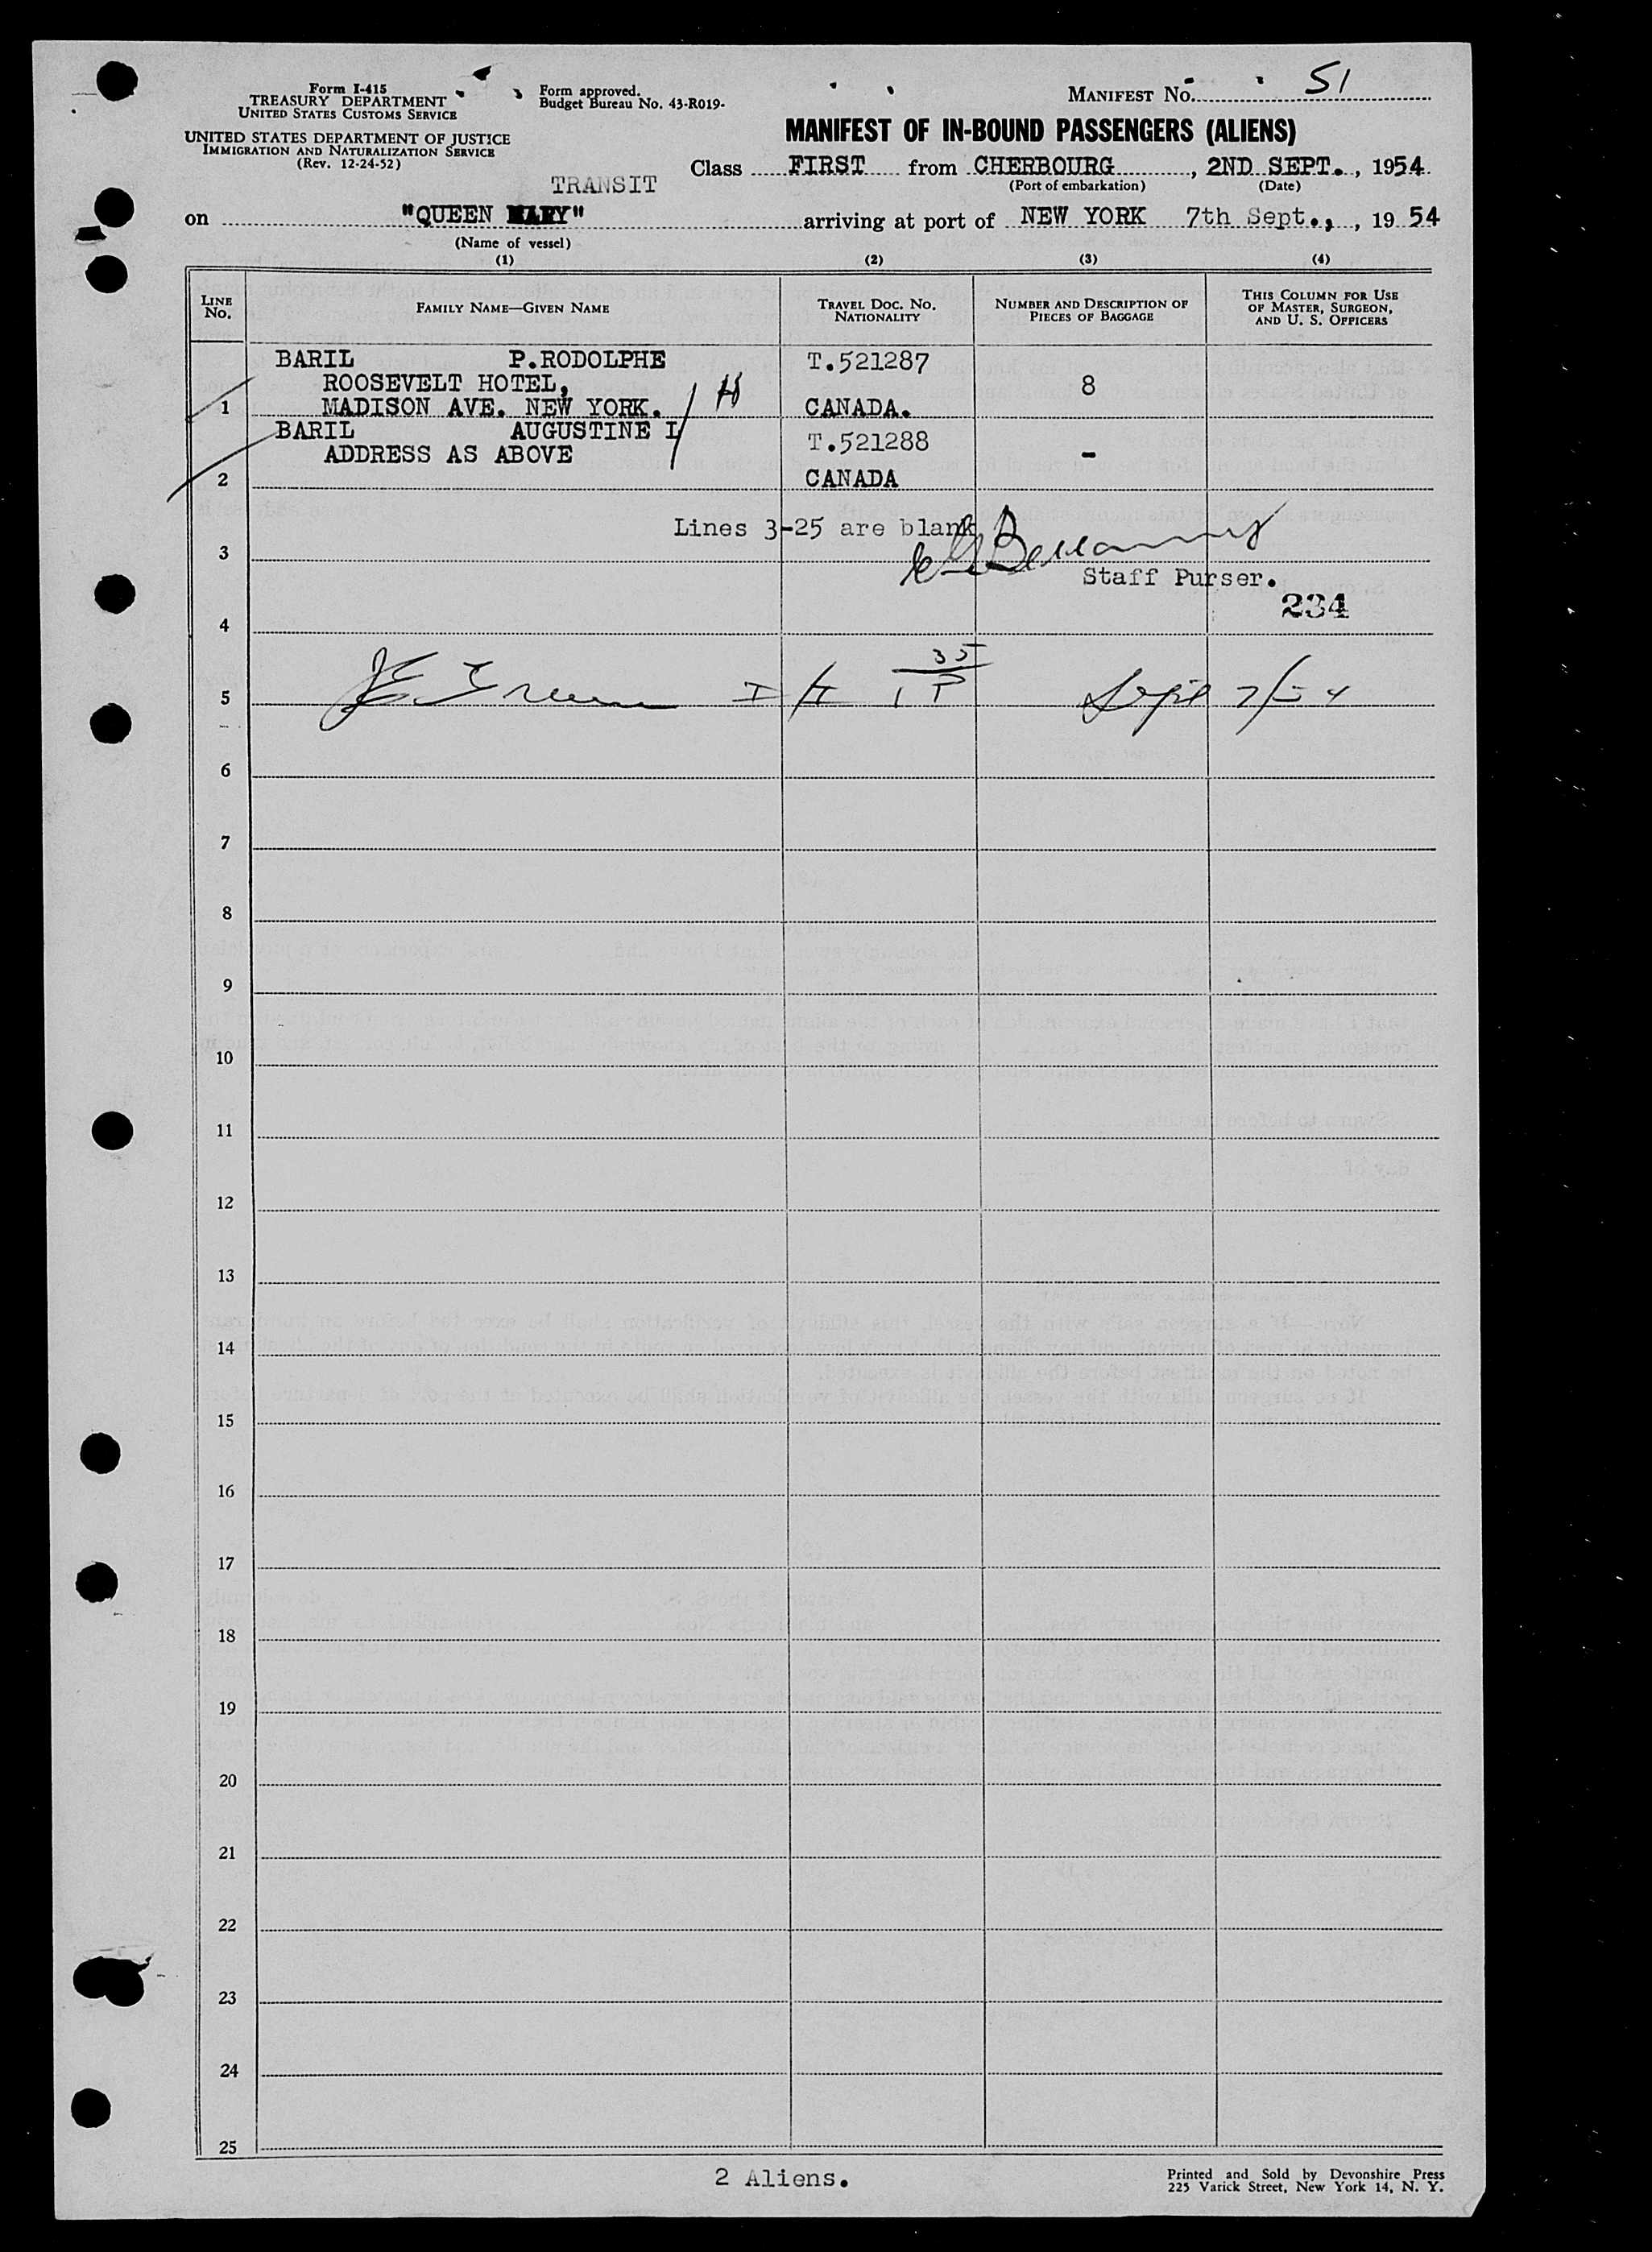 Form I-415
TREASURY DEPARTMENT
UNITED STATES CUSTOMS SERVICE
UNITED STATES DEPARTMENT OF JUSTICE
IMMIGRATION AND NATURALIZATION SERVICE
(Rev. 12-24-52)
Form approved.
Budget Bureau No. 43-R019-
MANIFEST No. 51
MANIFEST OF IN-BOUND PASSENGERS (ALIENS)
Class FIRST from CHERBOURG, 2ND SEPT., 1954.
(Port of embarkation) (Date)
TRANSIT
on "QUEEN MARY" arriving at port of NEW YORK 7th Sept., , 1954
(Name of vessel)
(1) (2) (3) (4)
LINE No. FAMILY NAME—GIVEN NAME TRAVEL DOC. NO. NATIONALITY NUMBER AND DESCRIPTION OF PIECES OF BAGGAGE THIS COLUMN FOR USE OF MASTER, SURGEON, AND U. S. OFFICERS
BARIL P.RODOLPHE T.521287
ROOSEVELT HOTEL, 8
1 MADISON AVE. NEW YORK. CANADA.
BARIL AUGUSTINE L T.521288
ADDRESS AS ABOVE -
2 CANADA
Lines 3-25 are blank
3
Staff Purser.
234
4
5 Sept 7/54
6
7
8
9
10
11
12
13
14
15
16
17
18
19
20
21
22
23
24
25
2 Aliens.
Printed and Sold by Devonshire Press
225 Varick Street, New York 14, N. Y.